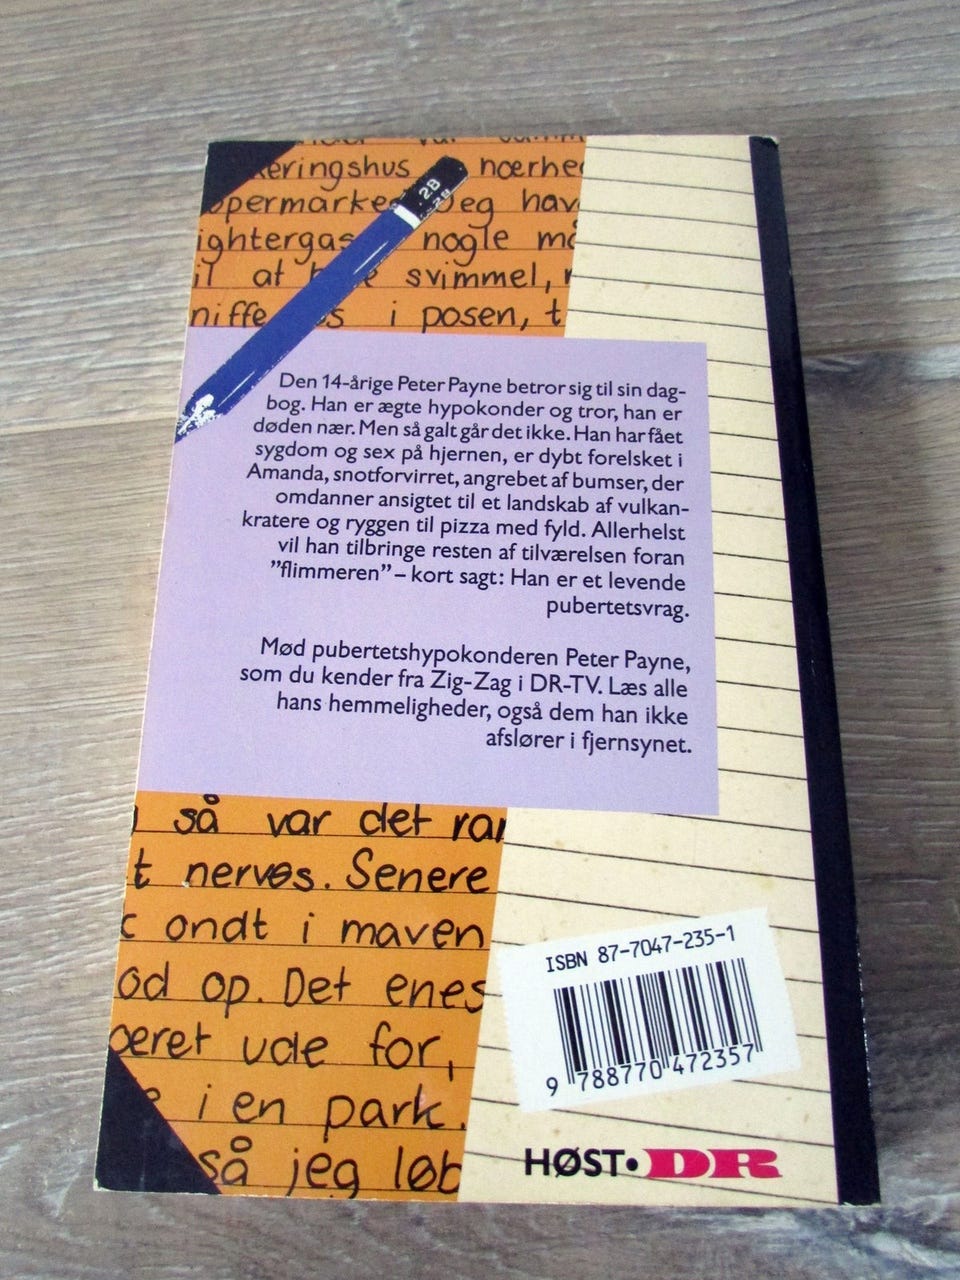 nærhe
Jeg hav
nogle
il at svimmel,
i posen, t
2B
2B
Den 14-årige Peter Payne betror sig til sin dag-
bog. Han er ægte hypokonder og tror, han er
døden nær. Men så galt går det ikke. Han har fået
sygdom og sex på hjernen, er dybt forelsket i
Amanda, snotforvirret, angrebet af bumser, der
omdanner ansigtet til et landskab af vulkan-
kratere og ryggen til pizza med fyld. Allerhelst
vil han tilbringe resten af tilværelsen foran
”flimmeren” – kort sagt: Han er et levende
pubertetsvrag.
Mød pubertetshypokonderen Peter Payne,
som du kender fra Zig-Zag i DR-TV. Læs alle
hans hemmeligheder, også dem han ikke
afslører i fjernsynet.
så var det ran
t nervøs. Senere
ondt i maven
od op. Det enes
æret ude for,
i en park.
så jeg løb
ISBN 87-7047-235-1
9 788770 472357
HØST•DR